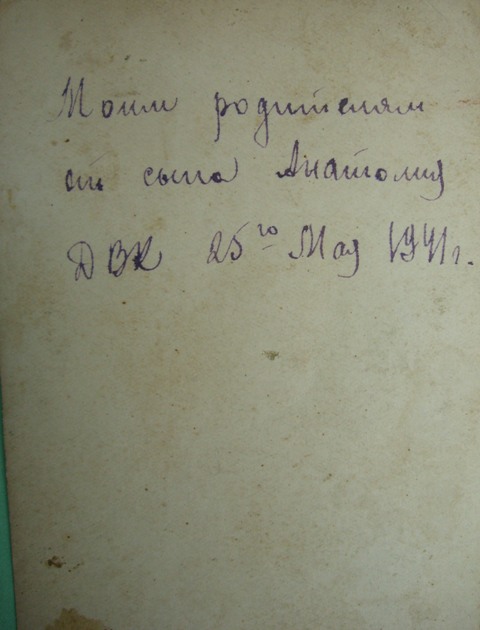 Моим родителям
от сына Анатолия
ДВК 25го Мая 1941г.